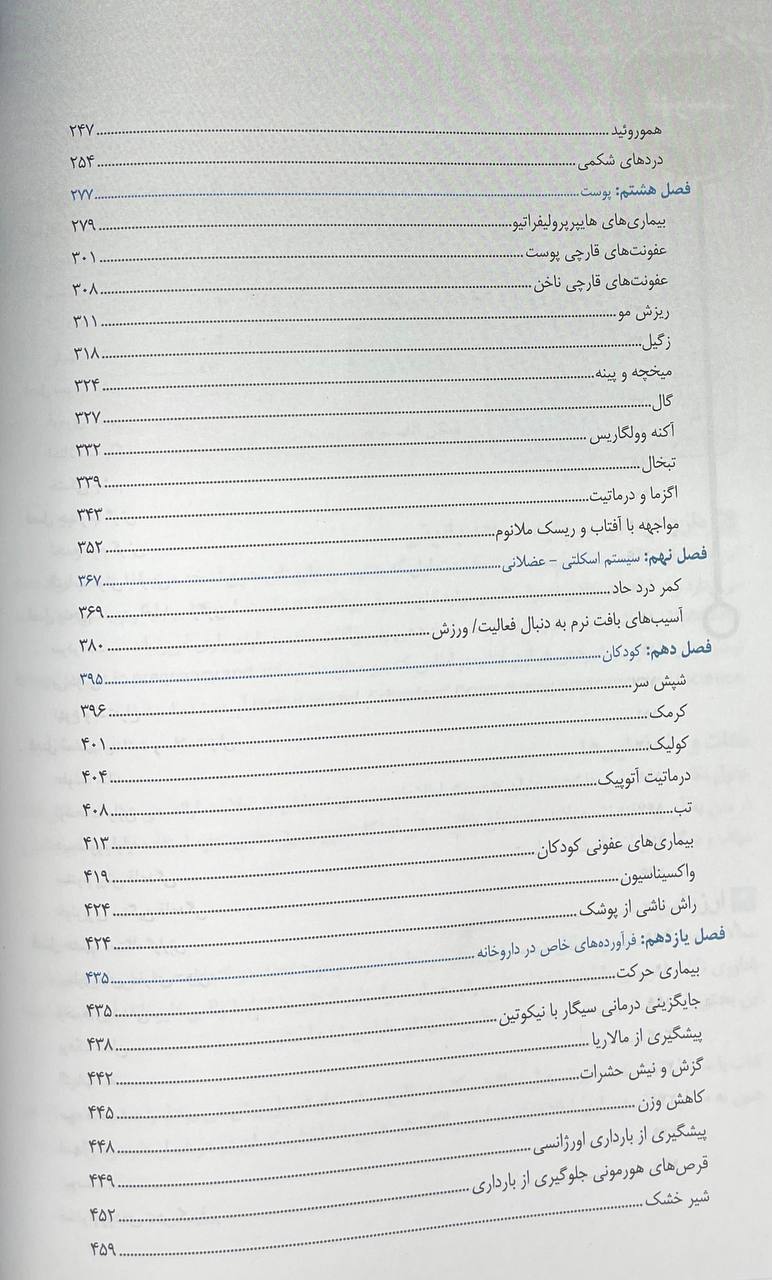 هموروئید ۲۴۷
دردهای شکمی ۲۵۴
فصل هشتم: پوست ۲۷۷
بیماری‌های هایپرپرولیفراتیو ۲۷۹
عفونت‌های قارچی پوست ۳۰۱
عفونت‌های قارچی ناخن ۳۰۸
ریزش مو ۳۱۱
زگیل ۳۱۸
میخچه و پینه ۳۲۴
گال ۳۲۷
آکنه وولگاریس ۳۳۲
تبخال ۳۳۹
اگزما و درماتیت ۳۴۳
مواجهه با آفتاب و ریسک ملانوم ۳۵۲
فصل نهم: سیستم اسکلتی - عضلانی ۳۶۷
کمر درد حاد ۳۶۹
آسیب‌های بافت نرم به دنبال فعالیت/ ورزش ۳۸۰
فصل دهم: کودکان ۳۹۵
شپش سر ۳۹۶
کرمک ۴۰۱
کولیک ۴۰۴
درماتیت آتوپیک ۴۰۸
تب ۴۱۳
بیماری‌های عفونی کودکان ۴۱۹
واکسیناسیون ۴۲۴
راش ناشی از پوشک ۴۲۴
فصل یازدهم: فرآورده‌های خاص در داروخانه ۴۳۵
بیماری حرکت ۴۳۵
جایگزینی درمانی سیگار با نیکوتین ۴۳۸
پیشگیری از مالاریا ۴۴۲
گزش و نیش حشرات ۴۴۵
کاهش وزن ۴۴۸
پیشگیری از بارداری اورژانسی ۴۴۹
قرص‌های هورمونی جلوگیری از بارداری ۴۵۲
شیر خشک ۴۵۹